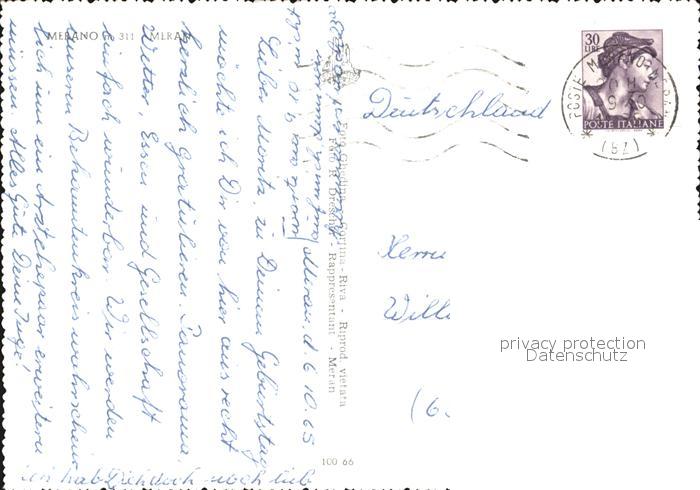 MERANO m 311 MERAN
Meran, d. 6.10.65
Lieber Moritz, zu Deinem Geburtstag
möchte ich Dir von hier aus recht
herzlich gratulieren. Panorama,
Wetter Essen und Gesellschaft
einfach wunderbar. Wir werden
unseren Bekanntenkreis wahrschein
lich um ein Arztehepaar erweitern
müssen. Alles Gute Deine Inge!
ich hab Dich doch noch lieb
Foto Ghedina - Cortina - Riva - Riprod. vietata
Foto R. Drescher - Rappresentant - Meran
100 66
Deutschland
Herrn
Willi
(6.
30
LIRE
POSTE ITALIANE
POSTE
(BZ)
privacy protection
Datenschutz